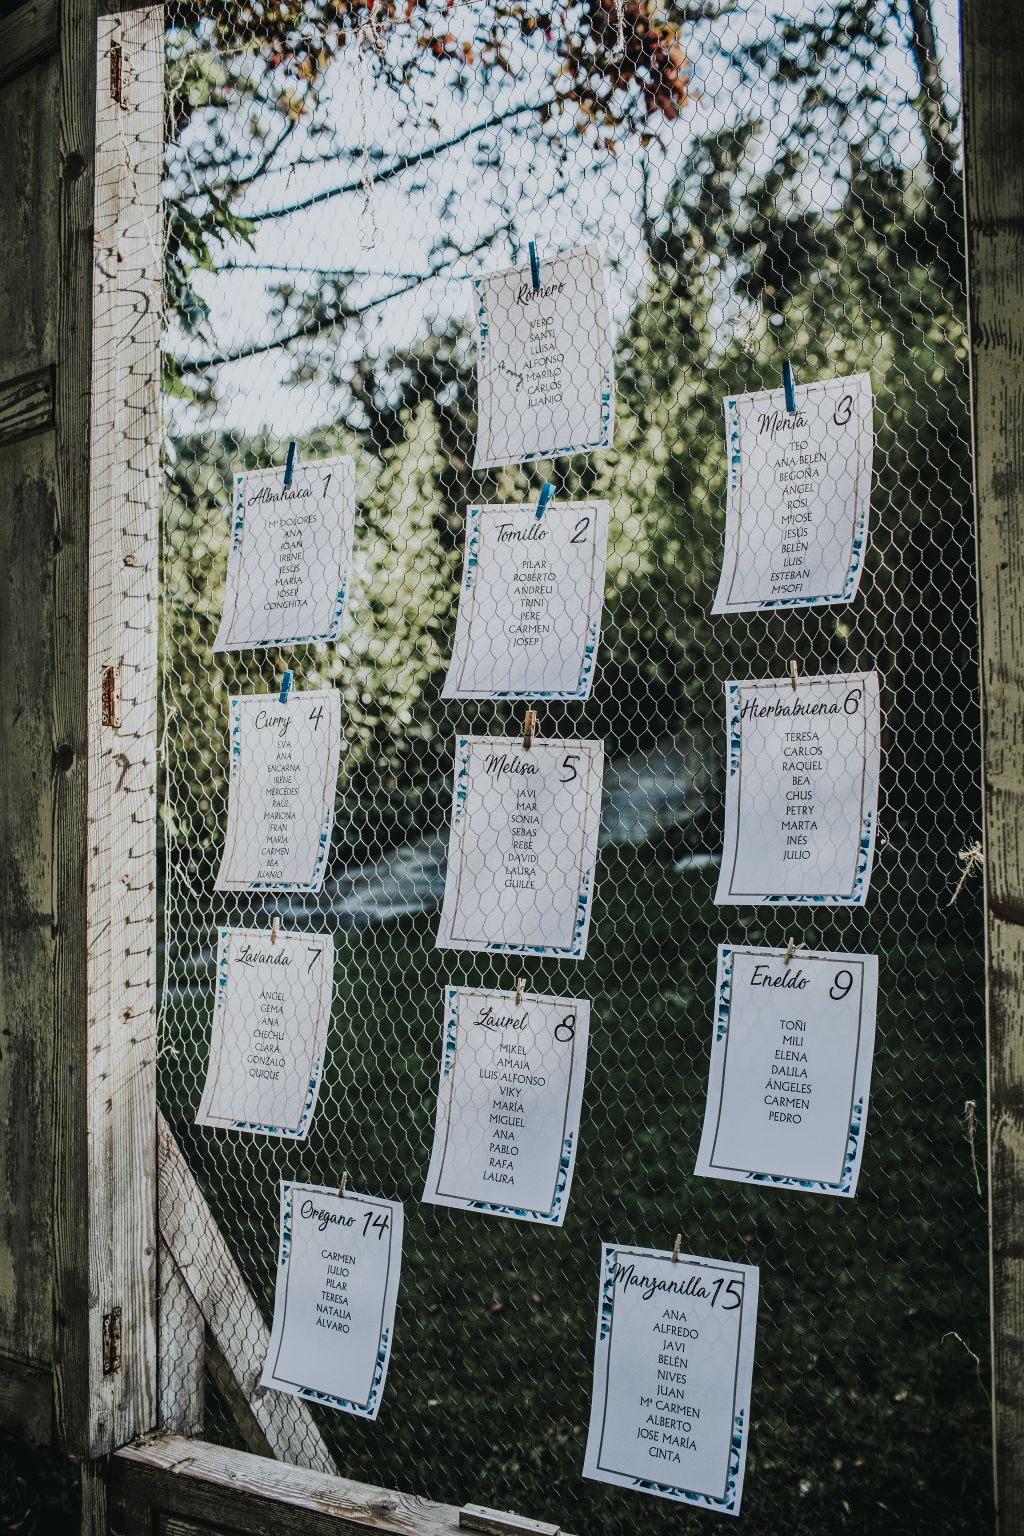 Romero
VERO
SANTI
LUISA
ALFONSO
MARILO
CARLOS
JUANJO
Albahaca 1
Mª DOLORES
ANA
JOAN
IRENE
JESÚS
MARÍA
JOSEP
CONCHITA
Tomillo 2
PILAR
ROBERTO
ANDREU
TRINI
PERE
CARMEN
JOSEP
Menta 3
TEO
ANA BELÉN
BEGOÑA
ÁNGEL
ROSI
MªJOSÉ
JESÚS
BELÉN
LUIS
ESTEBAN
MªSOFI
Curry 4
EVA
ANA
ENCARNA
IRENE
MERCEDES
RAÚL
MARIONA
FRAN
MARÍA
CARMEN
BEA
JUANJO
Melisa 5
JAVI
MAR
SONIA
SEBAS
REBE
DAVID
LAURA
GUILLE
Hierbabuena 6
TERESA
CARLOS
RAQUEL
BEA
CHUS
PETRY
MARTA
INÉS
JULIO
Lavanda 7
ÁNGEL
GEMA
ANA
CHECHU
CLARA
GONZALO
QUIQUE
Laurel 8
MIKEL
AMAIA
LUIS ALFONSO
VIKY
MARÍA
MIGUEL
ANA
PABLO
RAFA
LAURA
Eneldo 9
TOÑI
MILI
ELENA
DALILA
ÁNGELES
CARMEN
PEDRO
Orégano 14
CARMEN
JULIO
PILAR
TERESA
NATALIA
ÁLVARO
Manzanilla 15
ANA
ALFREDO
JAVI
BELÉN
NIVES
JUAN
Mª CARMEN
ALBERTO
JOSE MARÍA
CINTA